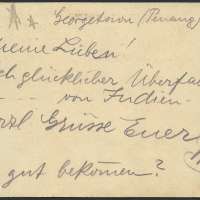 Georgetown (Penang)
meine Lieben!
ch glücklicher Überfa
von Indien
rzl Grüsse Euer
gut bekommen?